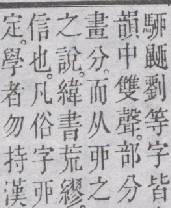 駵䶉劉等字皆
韻中雙聲部分
畫分而从丣之
之說緯書荒繆
信也凡俗字丣
定學者勿持漢